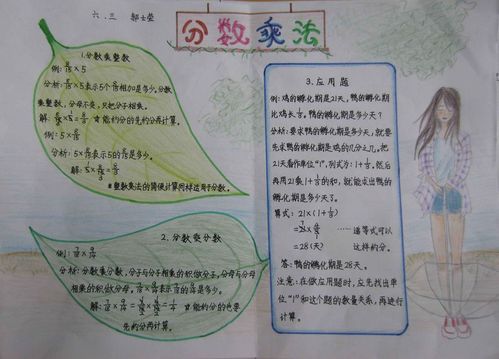 六.三 郭士荣
分数乘法
1.分数乘整数
例:2/15×5
分析:2/15×5表示5个2/15相加是多少。分数
乘整数，分母不变，只把分子相乘。
能约分的先约分再计算。
例:5×2/15
分析:5×2/15表示5的2/15是多少。
*整数乘法的简便计算同样适用于分数。
2.分数乘分数
例:7/18×9/14
分析:分数乘分数，分子与分子相乘的积做分子，分母与分母
相乘的积做分母。7/18×9/14表示7/18的9/14是多少。
能约分的也要
先约分再计算。
3.应用题
例:鸡的孵化期是21天，鸭的孵化期
比鸡长1/3。鸭的孵化期是多少天?
分析:要求鸭的孵化期是多少天，就要
先求鸭的孵化期是鸡的几分之几。把
21天看作单位“1”，列式为:1+1/3。然后
再用21乘1+1/3的和，就能求出鸭的
孵化期是多少天了。
算式:21×(1+1/3)
=21×4/3 ……递等式可以
=28(天) 这样约分。
答:鸭的孵化期是28天。
注意:在做应用题时，应先找出单
位“1”和这个题的数量关系，再进行
计算。